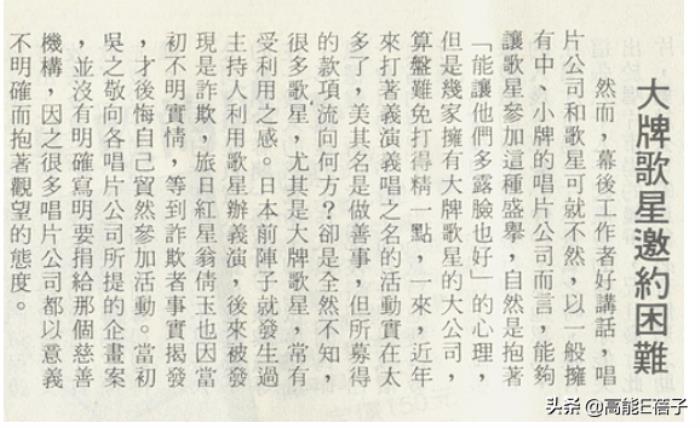 大牌歌星邀約困難
然而，幕後工作者好講話，唱
片公司和歌星可就不然，以一般擁
有中、小牌的唱片公司而言，能夠
讓歌星參加這種盛擧，自然是抱著
「能讓他們多露臉也好」的心理，
但是幾家擁有大牌歌星的大公司，
算盤難免打得精一點，一來，近年
來打著義演義唱之名的活動實在太
多了，美其名是做善事，但所募得
的款項流向何方？卻是全然不知，
很多歌星，尤其是大牌歌星，常有
受利用之感。日本前陣子就發生過
主持人利用歌星辦義演，後來被發
現是詐欺，旅日紅星翁倩玉也因當
初不明實情，等到詐欺者事實揭發
，才後悔自己貿然參加活動。當初
吳之敬向各唱片公司所提的企畫案
，並沒有明確寫明要捐給那個慈善
機構，因之很多唱片公司都以意義
不明確而抱著觀望的態度。
头条 @高能E蓓子